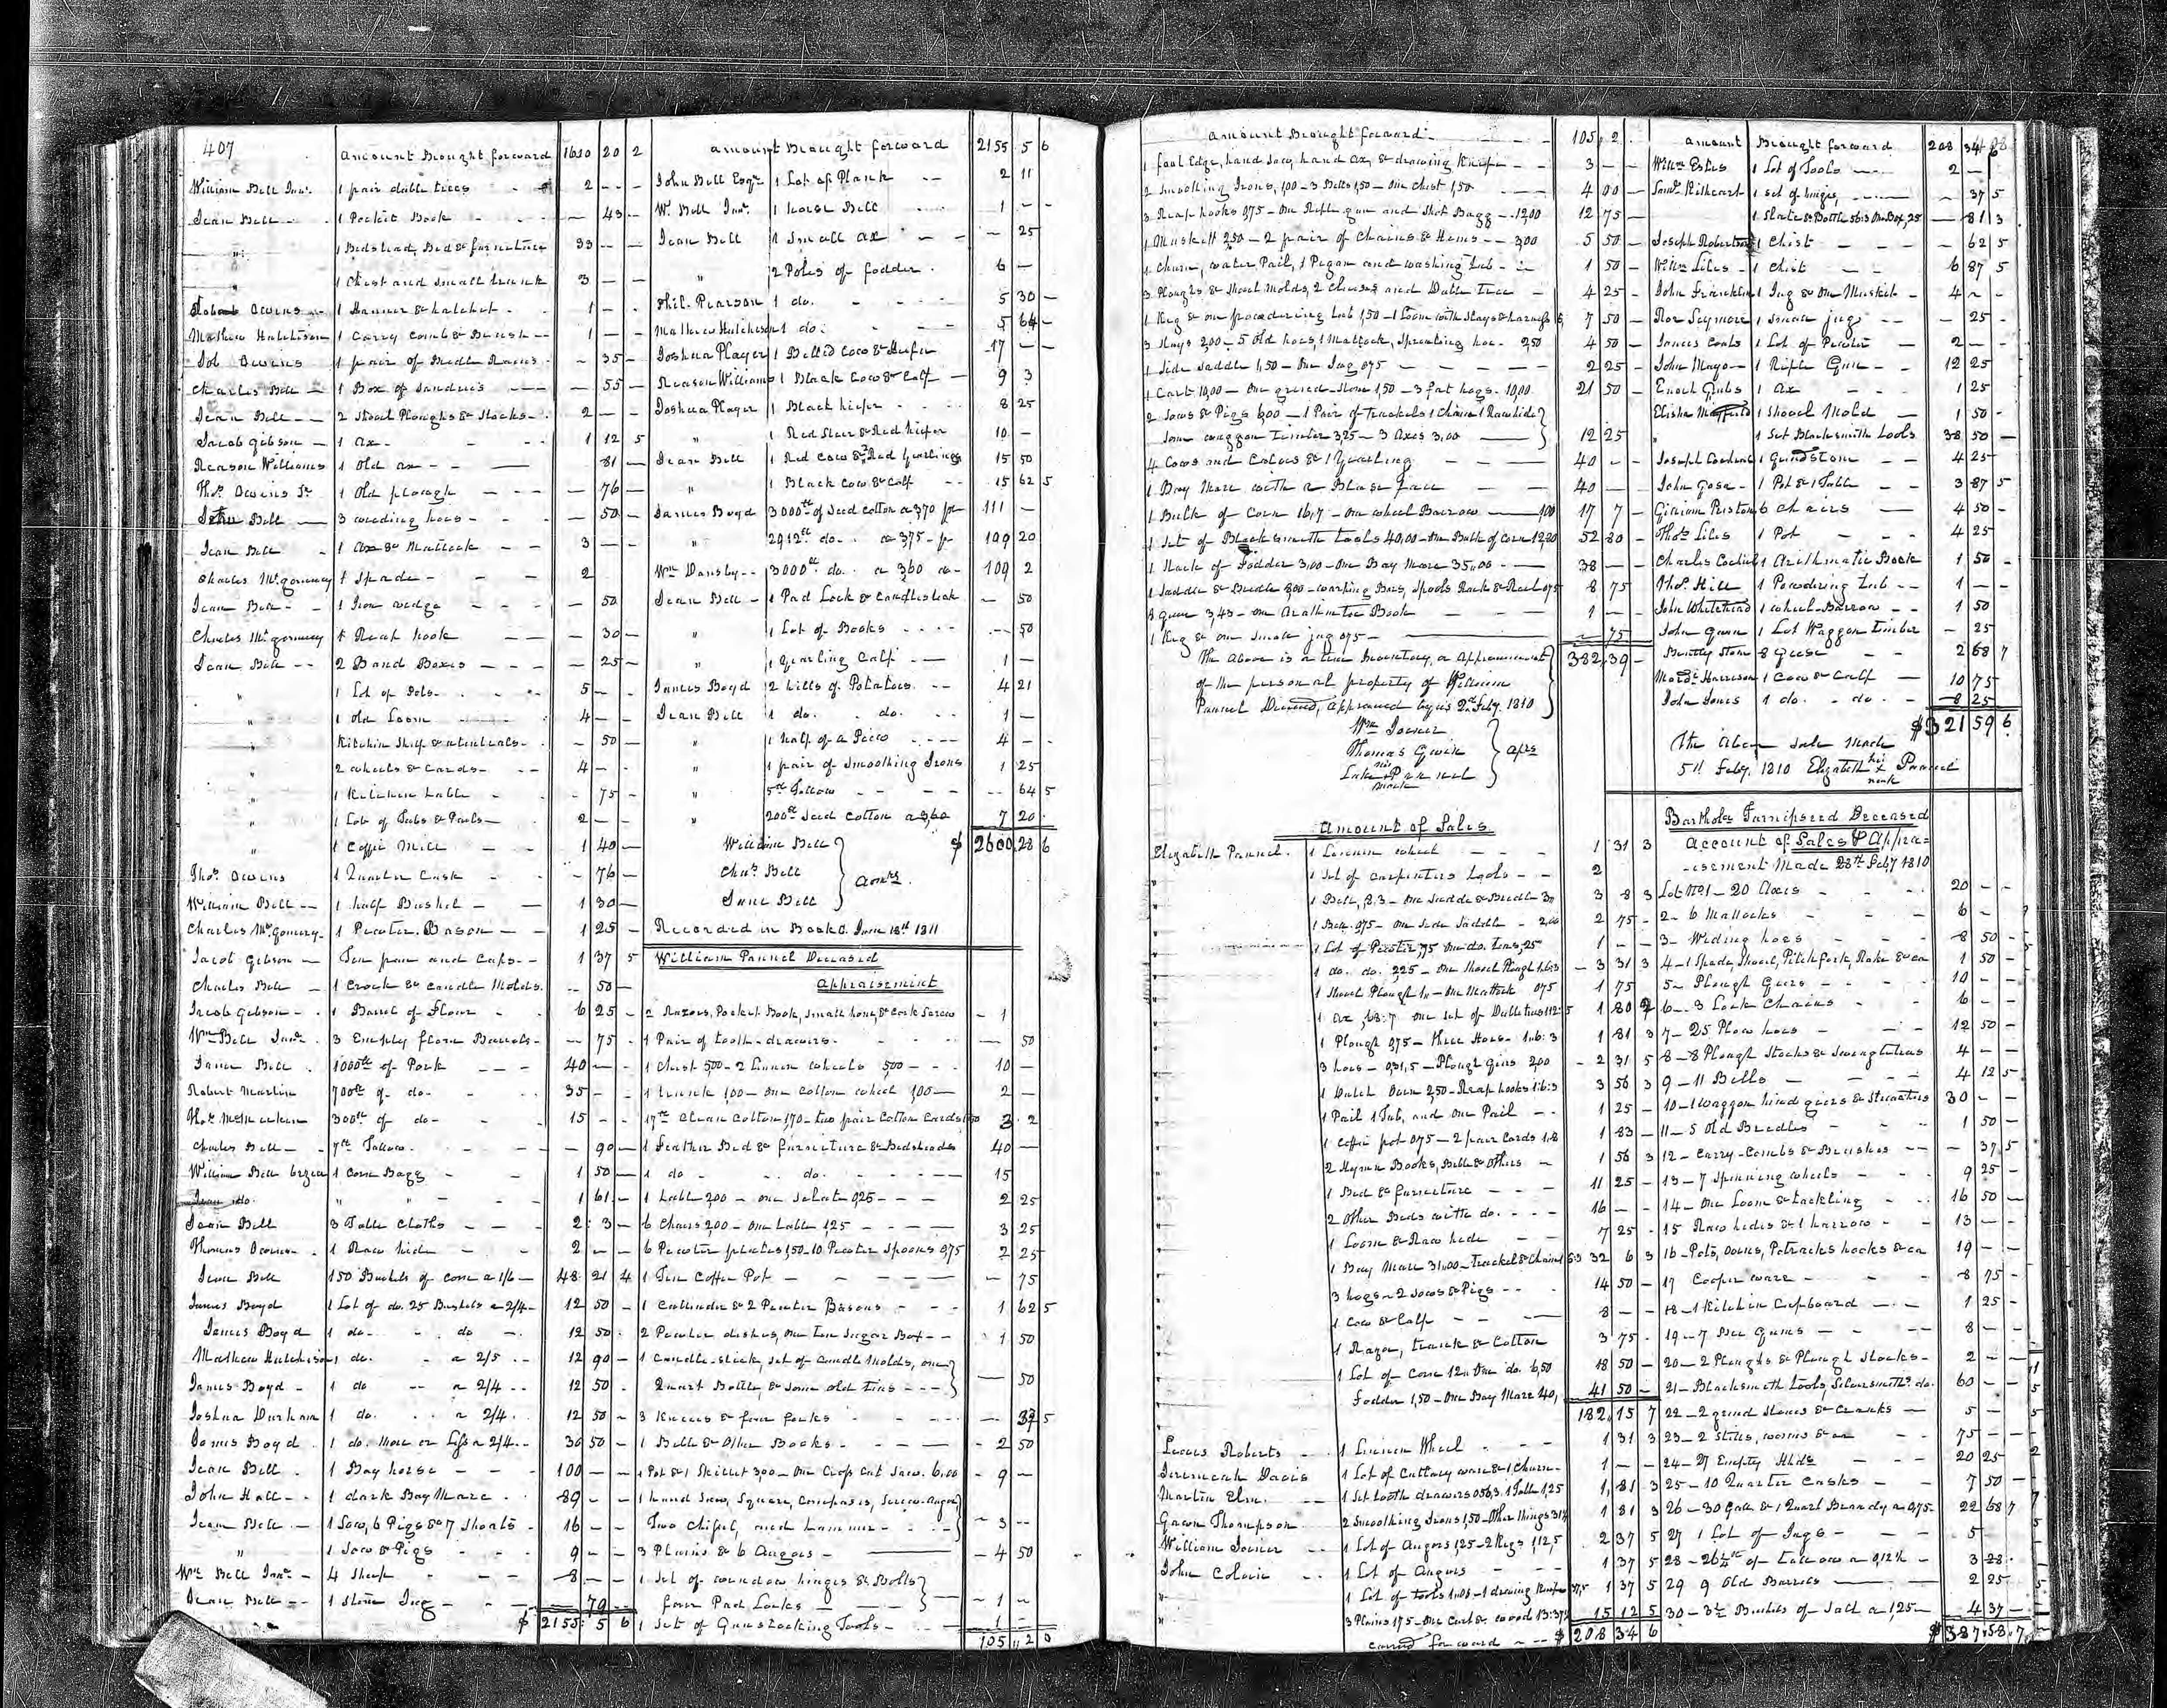 407
amount Brought forward 1610 20 2
William Bell Junr. 1 pair duble trees 2 - -
Jean Bell 1 Pocket Book - 43 -
" 1 Bedstead, Bed & furniture 33 - -
" 1 Chest and small trunk 3 - -
Robert Owens 1 Hammer & hatchet 1 -
Mathew Hutchison 1 Carry Comb & Brush 1 - -
Owens 1 pair of Bridle Rains - 35 -
Charles Bell 1 Box of Sundries - 55 -
Jean Bell 2 Shovel Ploughs & Stocks 2 - -
Jacob Gibson 1 ax 1 12 5
Reason Williams 1 Old ax 81 -
Thos. Owens Sr 1 Old plough - 76 -
John Bell 3 weeding hoes - 50 -
Jean Bell 1 ax & Mattock 3 - -
Charles McGomery 1 Spade 2
Jean Bell 1 Iron wedge - 50
Charles McGomery 1 Reap hook - 30 -
Jean Bell 2 Band Boxes - 25 -
" 1 Lot of Pots 5 -
" 1 Old Loom 4 - -
Kitchin Shelf & utentials - 50 -
" 2 wheels & Cards 4 -
" 1 Kitchen table - 75 -
" 1 Lot of Tubs & Pails 2 - -
" 1 Coffee Mill 1 40 -
Thos. Owens 1 Quarter Cask - 76 -
William Bell 1 half Bushel 1 30 -
Charles McGomery 1 Pewter Bason 1 25 -
Jacob Gibson Tin pan and Cups 1 37 5
Charles Bell 1 Crock & Candle Molds - 50 -
Jacob Gibson 1 Barrel of Flour 6 25 -
Wm Bell Junr. 3 Empty flour Barrels - 75 -
Jane Bell 1000lb of Pork 40 -
Robert Martin 700lb of do. 35 -
300lb of do 15 - -
Charles Bell 7lb Tallow - 90 -
William Bell 1 Corn Bagg 1 50 -
do. " " 1 61 -
Jean Bell 3 Table Cloths 2 3 -
Thomas Owens 1 Raw hide 2 - -
Jean Bell 150 Bushels of corn a 1/6 48 21 4
James Boyd 1 Lot of do. 25 Bushels a 2/4 12 50 -
James Boyd 1 do. do 12 50
Mathew Hutchison 1 do. a 2/5 12 90 -
James Boyd 1 do a 2/4 12 50
Joshua Durham 1 do. a 2/4 12 50 -
James Boyd 1 do. more or Less a 2/4 30 50 -
Jean Bell 1 Bay horse 100 - -
John Hall 1 dark Bay Mare 89 - -
Jean Bell 1 Sow, 6 Pigs & 7 Shoats 16 - -
" 1 Sow & Pigs 9 - -
Wm Bell Junr 4 Sheep 8 - -
Jean Bell 1 Stone Jug - 79 -
$ 2155 5 6
amount Brought forward 2155 5 6
John Bell Esqr. 1 Lot of Plank 2 11
W. Bell Junr. 1 horse Bell 1 - -
Jean Bell 1 Small ax - 25
" 2 Poles of fodder 6 -
Phil. Pearson 1 do. 5 30 -
Mathew Hutchison 1 do. 5 64 -
Joshua Player 1 Belled Cow & Heifer 17 - -
Reason Williams 1 Black Cow & Calf 9 3
Joshua Player 1 Black heifer 8 25
" 1 Red Steer & Red heifer 10 -
Jean Bell 1 Red Cow & Red Yearlings 15 50
" 1 Black Cow & Calf 15 62 5
James Boyd 3000lb of Seed Cotton a 370 pr 111 -
" 2912lb do. a 375 pr 109 20
Wm Dansby 3000lb do. a 360 do 109 2
Jean Bell 1 Pad Lock & Candlestick - 50
" 1 Lot of Books - 50
" 1 Yearling Calf 1 -
James Boyd 2 hills of Potatoes 4 21
Jean Bell 1 do. do. 1 -
" 1 half of a 4 -
" 1 pair of Smoothing Irons 1 25
" 5lb Tallow - 64 5
" 200lb Seed Cotton a 3,60 7 20
$ 2600 28 6
William Bell
Chas. Bell
Jane Bell
Admrs.
Recorded in Book D. June 18th 1811
William Pannel Deceased
Appraisement
2 Razors, Pocket Book, small hone, & Cork Screw - 1
1 Pair of tooth-drawers - 50
1 Chest 500 - 2 Linnen wheels 500 10 -
1 trunk 100 - One Cotton wheel 100 2 -
17lb Clean Cotton 1,70 - two pair Cotton Cards 1,50 3 2
1 Feather Bed & furniture & Bedsteads 40 -
1 do - do. 15
1 table 200 - One 025 2 25
6 Chairs 2,00 - One table 1,25 3 25
6 Pewter plates 1,50 - 10 Pewter Spoons 075 2 25
1 Tin Coffee Pot - 75
1 Cullender & 2 Pewter Basons 1 62 5
2 Pewter dishes, One tin Sugar Box 1 50
1 Candle-stick, set of Candle Molds, one
Quart Bottle, & some old tins - 50
3 Knives & four forks - 37 5
1 Bible & Other Books 2 50
1 Pot & 1 Skillet 3,00 - One Cross Cut Saw 6,00 9 -
1 hand Saw, Square, Compases, Screw-auger
Two Chisel, and hammer 3 -
3 Plains & 6 Augers 4 50
1 Set of window hinges & Bolts
four Pad Locks 1 -
1 Set of Gunstocking Tools 1 -
105 2 0
amount Brought forward 105 2
1 foot Edge, hand saw, hand ax, & drawing Knife 3 -
2 Smoothing Irons, 1,00 - 3 Bells 1,50 - One Chest 1,50 4 00 -
3 Reap hooks 075 - One Rifle gun and Shot Bagg 12,00 12 75 -
1 Muskett 2,50 - 2 pair of Chains & Hems 3,00 5 50 -
1 Churn, water Pail, 1 Pigan and washing tub 1 50 -
3 Ploughs & Shovel Molds, 2 Clevises and Duble Tree 4 25 -
1 Keg & one powdering tub 1,50 - 1 Loom with Slays & harness 6, 7 50 -
3 Slays 2,00 - 5 Old hoes, 1 Mattock, Sprouting hoe 2,50 4 50 -
1 Side Saddle 1,50 - One Jug 075 2 25
1 Cart 10,00 - One grind-stone 1,50 - 3 fat hogs 10,00 21 50 -
2 Sows & Pigs 6,00 - 1 Pair of 1 Chain 1 Rawhide
Some waggon timber 3,25 - 3 Axes 3,00 12 25
4 Cows and Calves & 1 Yearling 40 - -
1 Bay Mare with a Blase face 40 -
1 Bulk of Corn 16,7 - One wheel Barrow 1,00 17 7 -
1 Set of Black Smith tools 40,00 - One Bulk of Corn 12,80 52 80 -
1 Stack of Fodder 3,00 - One Bay Mare 35,00 38 -
1 Saddle & Bridle 8,00 - warping Bars, Spools Rack & Reel 075 8 75
One Arithmetic Book 1 -
1 Keg & one small jug 075 - 75
382 39 -
The above is a true Inventory, & Appraisement
of the personal property of William
Pannel Deceased, appraised by us 2nd Feby. 1810
Wm Joiner
Thomas Gwin
Luke Pannel
his
mark
aprs
Amount of Sales
Elizabeth Pannel. 1 Linnen wheel 1 31 3
" 1 Set of Carpenters tools 2
" 1 Bell, 3,3 - One Saddle & Bridle 3 8 3
" 1 Bell 075 - One Side Saddle 2,00 2 75 -
" 1 Lot of Pewter 75 One do. tins, 25 1 - -
" 1 do. do. 225 - One Shovel Plough 1:6:3 3 31 3
" 1 Shovel Plough 1,, - One Mattock 075 1 75
" 1 ax, 68:7 one set of Duble trees 112:5 1 80 2
" 1 Plough 075 - three Hoes 1:6:3 1 81 3
" 3 hoes 0,31,5 - Plough Gears 2,00 2 31 5
" 1 Dutch Oven 2,50 - Reap hooks 1:6:3 3 56 3
" 1 Pail 1 Tub, and One Pail 1 25 -
" 1 Coffee pot 075 - 2 pair Cards 1,8 1 83 -
" 2 Hymn Books, Bible & Others 1 56 3
" 1 Bed & furniture 11 25 -
" 2 Other Beds with do. 16 - -
" 1 Loom & Raw hide 7 25
" 1 Bay Mare 31,00 - & Chains 32 6 3
" 3 hogs - 2 Sows & Pigs 14 50 -
" 1 Cow & Calf 8 - -
" 1 Razor, trunk & Cotton 3 75
" 1 Lot of Corn 12,, One do. 6,50 18 50 -
Fodder 1,50 - One Bay Mare 40, 41 50 -
182 15 7
Lewis Roberts 1 Linnen Wheel 1 31 3
Jeremeah Davis 1 Lot of Cutlary ware & 1 Churn 1 - -
Martin Elm. 1 Set tooth drawers 056,3. 1 Table 1,25 1 81 3
Gawn Thompson 2 Smoothing Irons 1,50 - Other things 31¼ 1 81 3
William Joiner 1 Lot of Augers 1,25 - 2 Kegs 1,12,5 2 37 5
John Colvin 1 Lot of Augers 1 37 5
" 1 Lot of tools 1,00 - 1 drawing Knife 37,5 1 37 5
" 3 Plains 1,75 - One Cart & wood 13:37½ 15 12 5
carrd forward $ 208 34 6
amount Brought forward 208 34 6
Willm Estes 1 Lot of Tools 2 -
Saml. Kithcart 1 set of hinges, - 37 5
1 Slate & Bottle 56:3 One Box, 25 - 81 3
Joseph Robertson 1 Chist - 62 5
Willm Liles 1 Chist 6 87 5
John Franklin 1 Jug & One Musket 4 -
Seymore 1 Small jug - 25
James Coats 1 Lot of Pewter 2 -
John Mayo 1 Rifle Gun 12 25
Enoch Grubs 1 ax 1 25
Elisha Mayfield 1 Shovel Mold 1 50 -
" 1 Set Blacksmith tools 38 50 -
Joseph 1 Grindstone 4 25
John Goza 1 Pot & 1 Table 3 87 5
6 Chairs 4 50 -
Thos. Liles 1 Pot 4 25
Charles 1 Arithmatic Book 1 50 -
Thos. Hill 1 Powdering Tub 1 -
John Whitehead 1 wheel-Barrow 1 50
John Gwin 1 Lot Waggon timber - 25
Bently Ston 8 Geese 2 68 7
Harrison 1 Cow & Calf 10 75
John Jones 1 do. do. 8 25
$321 59 6
The above Sale Made
5th Feby. 1810 Elizabeth Pannel
her
X
mark
Bartholw Turnipseed Deceased
account of Sales & Appra=
=isement Made 28th Feby 1810
Lot No 1 - 20 Axes 20 - -
2 - 6 Mattocks 6 -
3 - Weding hoes 8 50
4 - 1 Spade, Shovel, Pitch fork, Rake &ca 1 50 -
5 - Plough Gears 10 -
6 - 3 Lock Chains 6 -
7 - 25 Plow hoes 12 50 -
8 - 8 Plough Stocks & Swingletrees 4 -
9 - 11 Bells 4 12 5
10 - 1 waggon hind gears & Streachers 30 - -
11 - 5 Old Bridles 1 50 -
12 - Carry-Combs & Brushes - 37 5
13 - 7 Spinning wheels 9 25 -
14 - One Loom & tackling 16 50 -
15 Raw hides & 1 harrow 13 - -
16 - Pots, Ovens, Potracks hooks &ca 19 - -
17 Cooper ware 8 75 -
18 - 1 Kitchen Cupboard 1 25 -
19 - 7 Bee Gums 8 - -
20 - 2 Ploughs & Plough Stocks 2 - -
21 - Blacksmith tools, Silversmiths do. 60 - -
22 - 2 grind Stones & Cranks 5 -
23 - 2 Stills, worms &ca 75 - -
24 - 27 Empty Hhds 20 25
25 - 10 Quarter Casks 7 50 -
26 - 30 Gall & 1 Quart Brandy a 075 22 68 7
27 1 Lot of Jugs 5
28 - 26¼lb of tallow a 0,12½ 3 28
29 9 Old Barrels 2 25
30 - 3½ Bushels of Salt a 1,25 4 37 -
$ 387 58 7